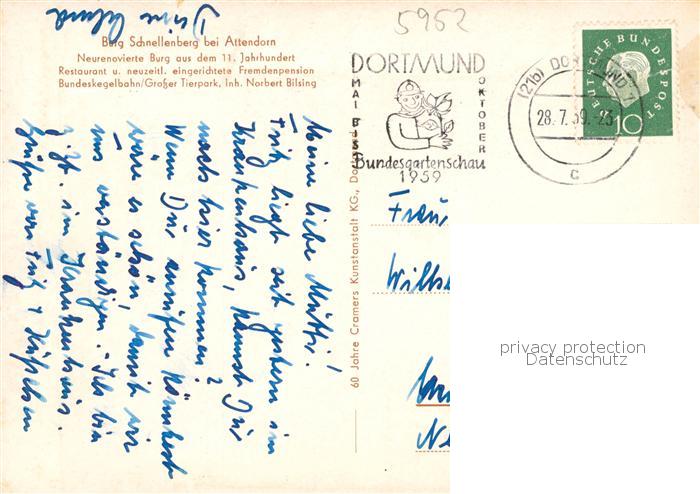 5962
Burg Schnellenberg bei Attendorn
Neurenovierte Burg aus dem 11. Jahrhundert
Restaurant u. neuzeitl. eingerichtete Fremdenpension
Bundeskegelbahn/Großer Tierpark, Inh. Norbert Bilsing
DORTMUND
MAI BIS OKTOBER
Bundesgartenschau
1959
(21b) DORTMUND 1
28.7.59.-23
c
DEUTSCHE BUNDESPOST
10
Meine liebe Mutti!
Fritz liegt seit gestern im
Krankenhaus, kannst Du
noch hier kommen?
Wenn Du anrufen könntest
wäre es schön, damit wir
uns verständigen. - Ich bin
z.Zt. im Krankenhaus.
Grüße von Fritz +
Deine
60 Jahre Cramers Kunstanstalt KG., Do
Frau
privacy protection
Datenschutz